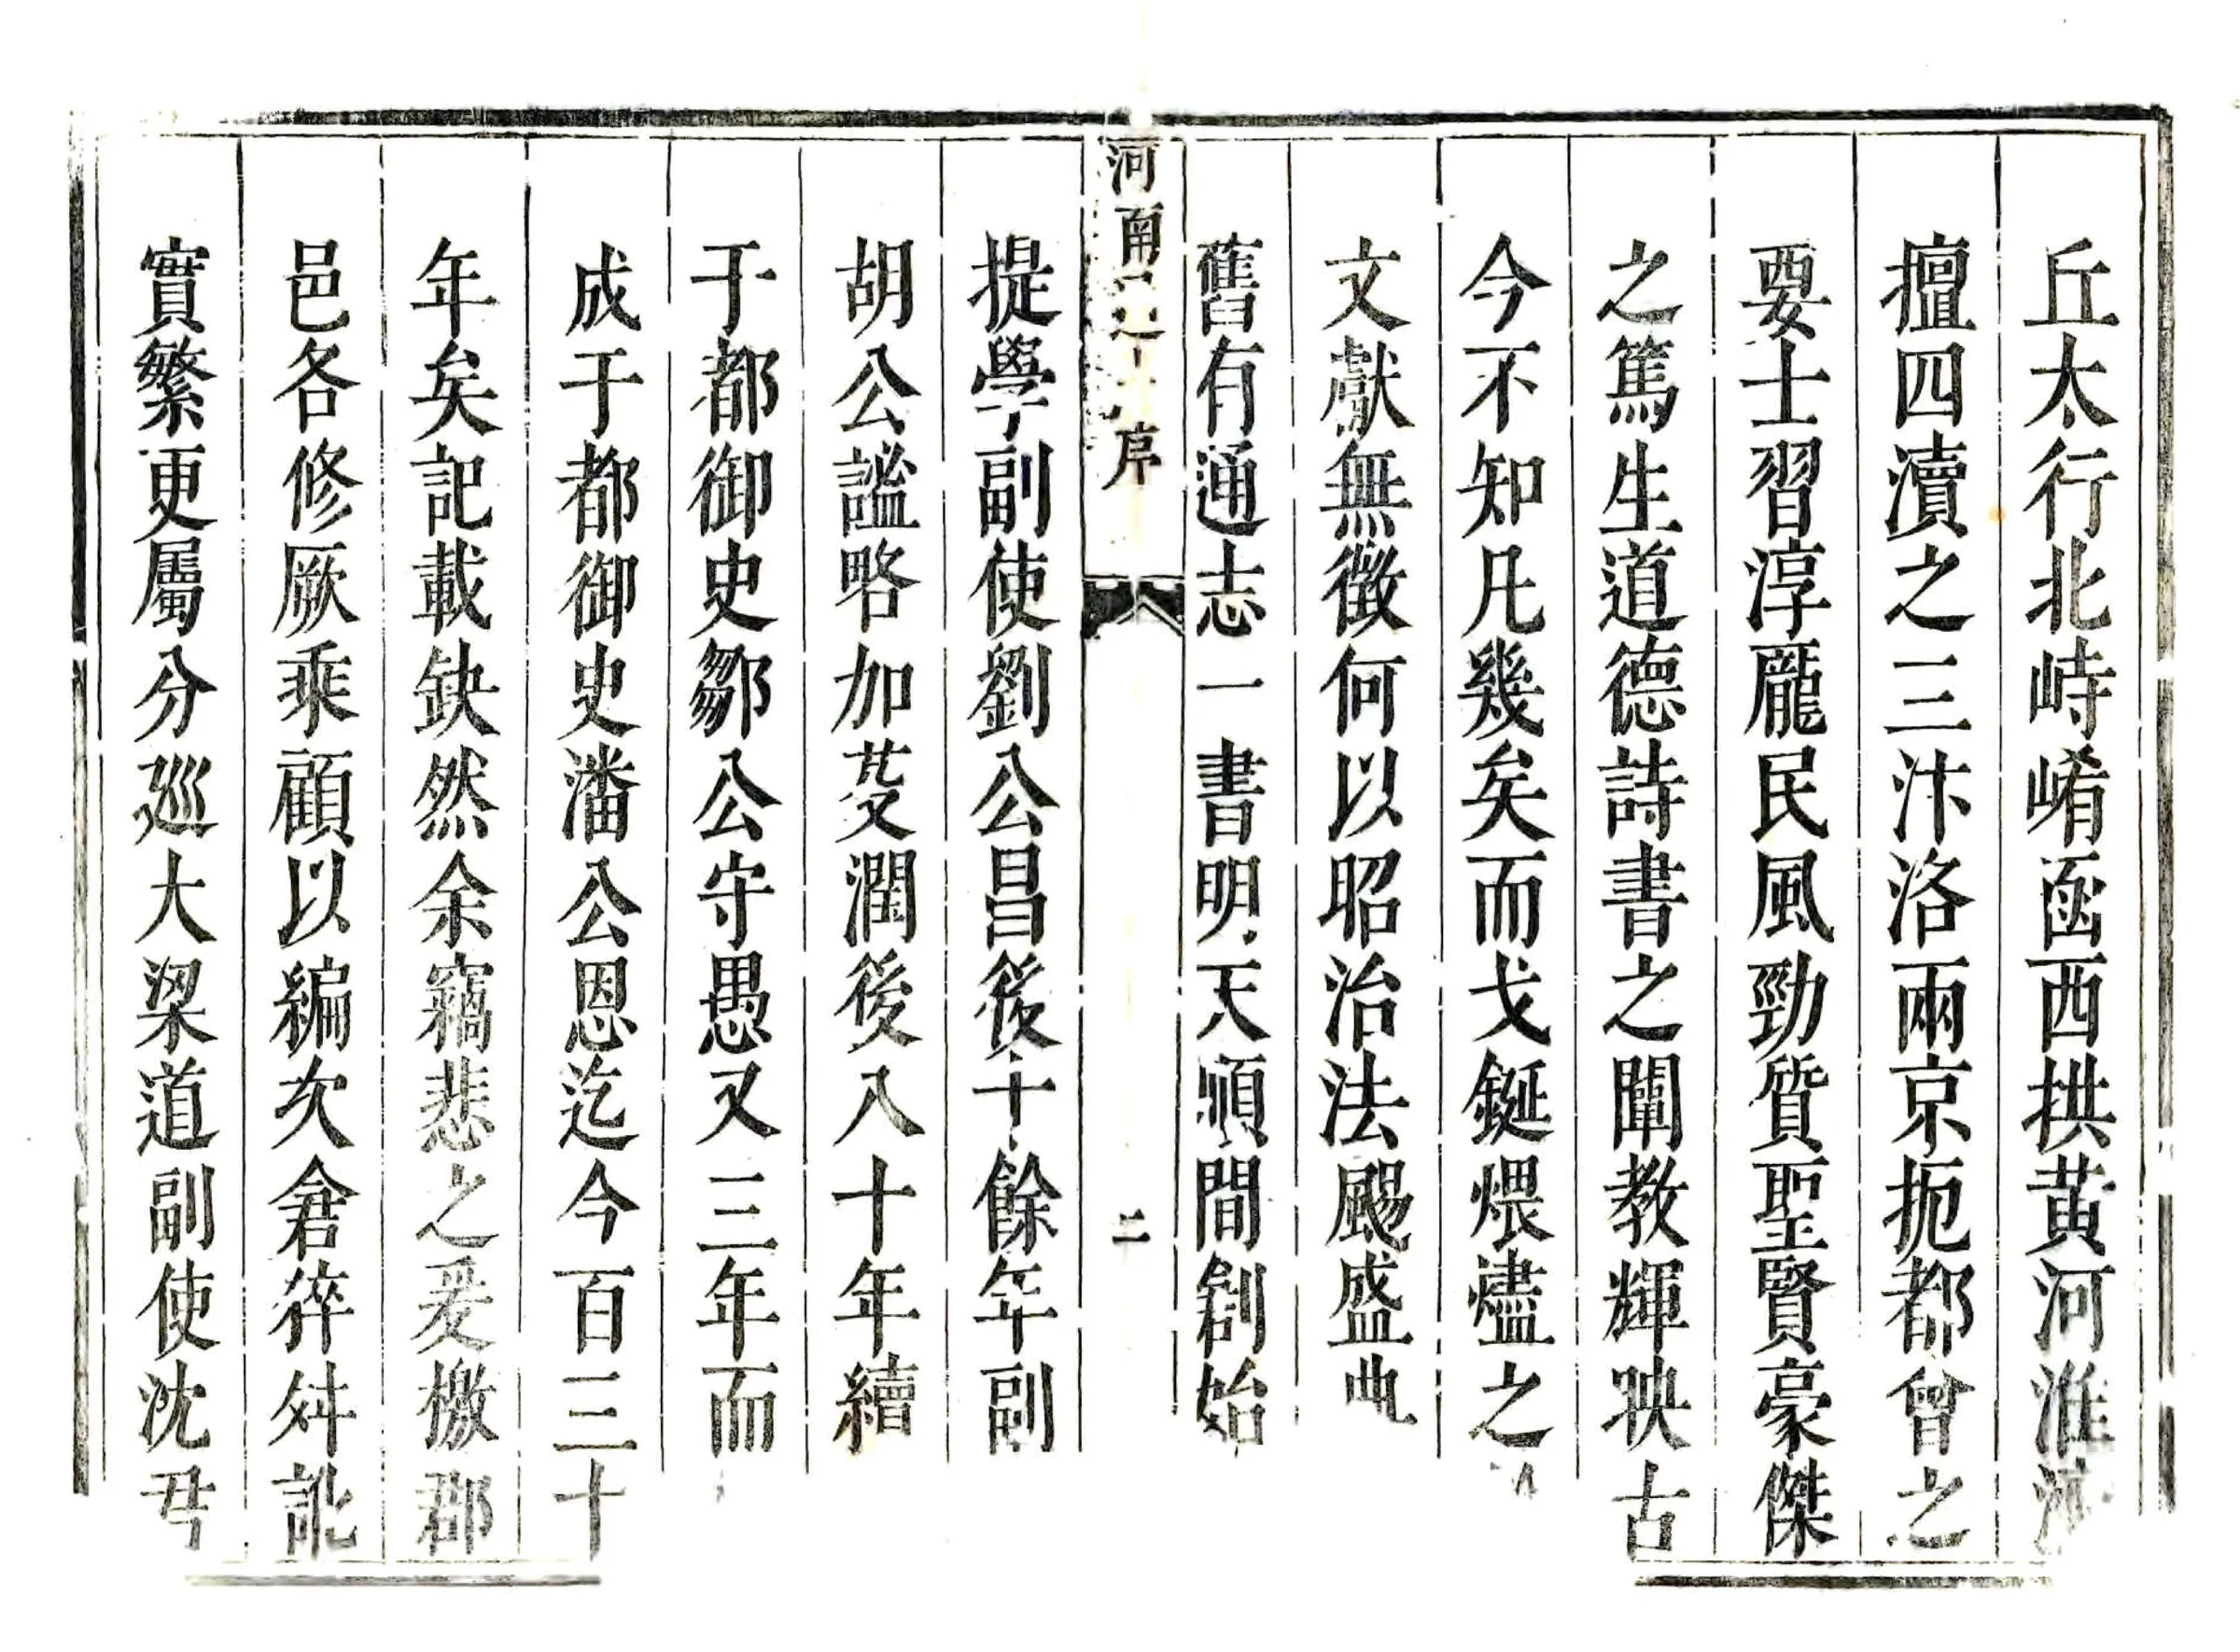 丘太行北峙崤函西拱黄河淮
擅四瀆之三汴洛兩京扼都會之
要士習淳龎民風勁質聖賢豪傑
之篤生道德詩書之闡教輝映古
今不知凡幾矣而戈鋋煨燼之
文獻無徵何以昭治法颺盛典
舊有通志一書明天順間創始
河南通志序
二
提學副使劉公昌後十餘年副
胡公謐略加芟潤後八十年續
于都御史鄒公守愚又三年而
成于都御史潘公恩迄今百三十
年矣記載缺然余竊悲之爰檄郡
邑各修厥乘顧以編次倉猝舛訛
實繁更屬分廵大梁道副使沈